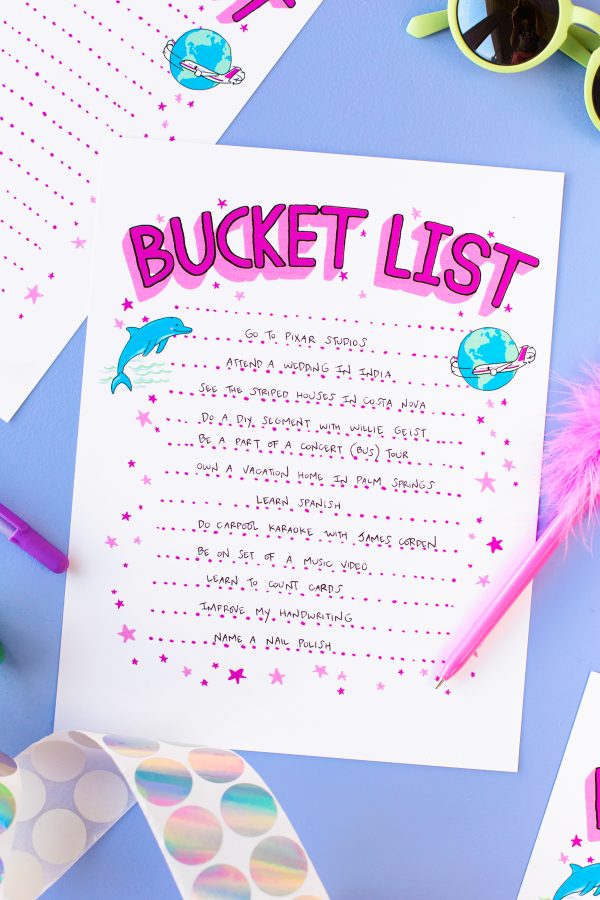 BUCKET LIST
GO TO PIXAR STUDIOS
ATTEND A WEDDING IN INDIA
SEE THE STRIPED HOUSES IN COSTA NOVA
DO A DIY SEGMENT WITH WILLIE GEIST
BE A PART OF A CONCERT (BUS) TOUR
OWN A VACATION HOME IN PALM SPRINGS
LEARN SPANISH
DO CARPOOL KARAOKE WITH JAMES CORDEN
BE ON SET OF A MUSIC VIDEO
LEARN TO COUNT CARDS
IMPROVE MY HANDWRITING
NAME A NAIL POLISH